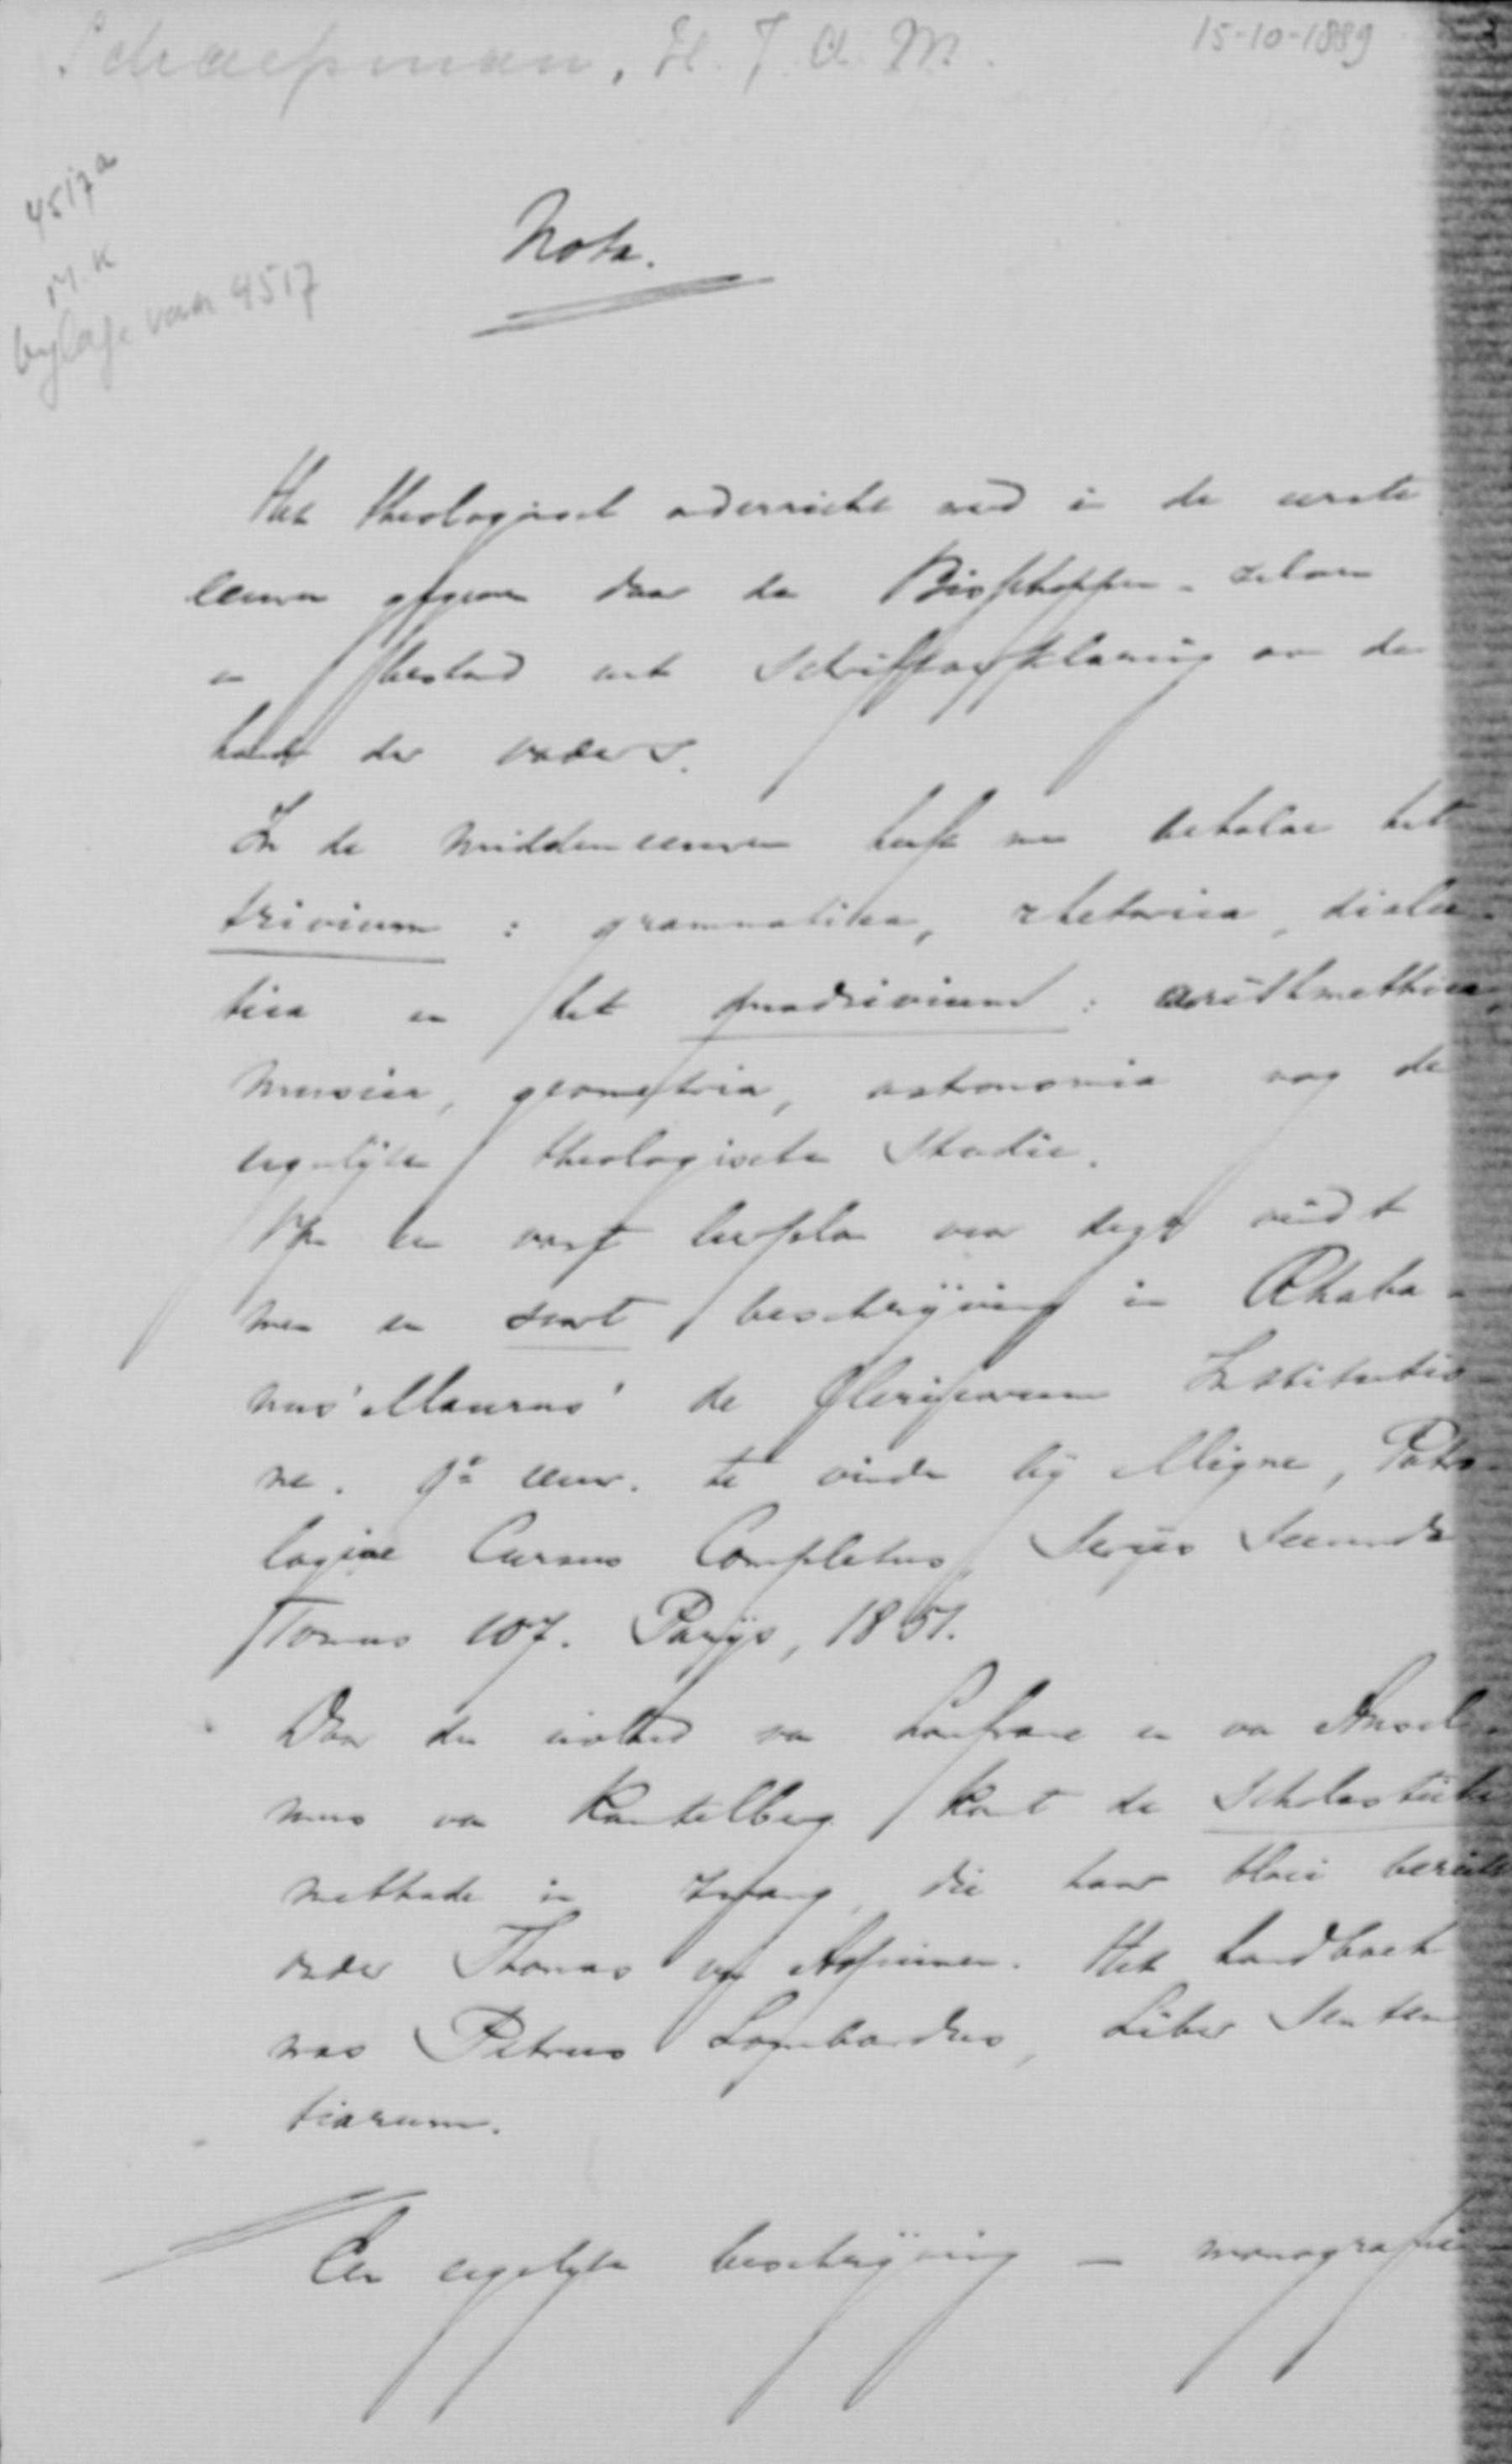 Schaepman, H. J. A. M.
15-10-1889
4517a
M.K
bylage van 4517
Nota.
Het theologisch onderricht werd in de eerste
eeuwen gegeven door de Bisschoppen-zelven
en bestond uit Schriftverklaring aan de
hand der vaders.
In de middeneeuwen heeft men behalve het
trivium : grammatica, rhetorica, dialec-
tica en het quadrivium : arithmethica,
musica, geometria, astronomia nog de
eigenlijke theologische Studie.
een vast leerplan voor vindt
men een soort beschrijving in Rhaba-
nus Maurus' de Clericorum Institutio-
ne. 9e eeuw. te vinden bij Migne, Patro-
logiae Cursus Completus, Series Secunda
Tomus 107. Parijs, 1851.
Door den invloed van Lanfranc en van Ansel-
mus van Kantelberg komt de Scholastieke
methode in zwang, die haar bloei bereikt
onder Thomas van Aquinen. Het handboek
was Petrus Lombardus, Liber Senten-
tiarum.
Een eigenlijke beschrijving — monografie —